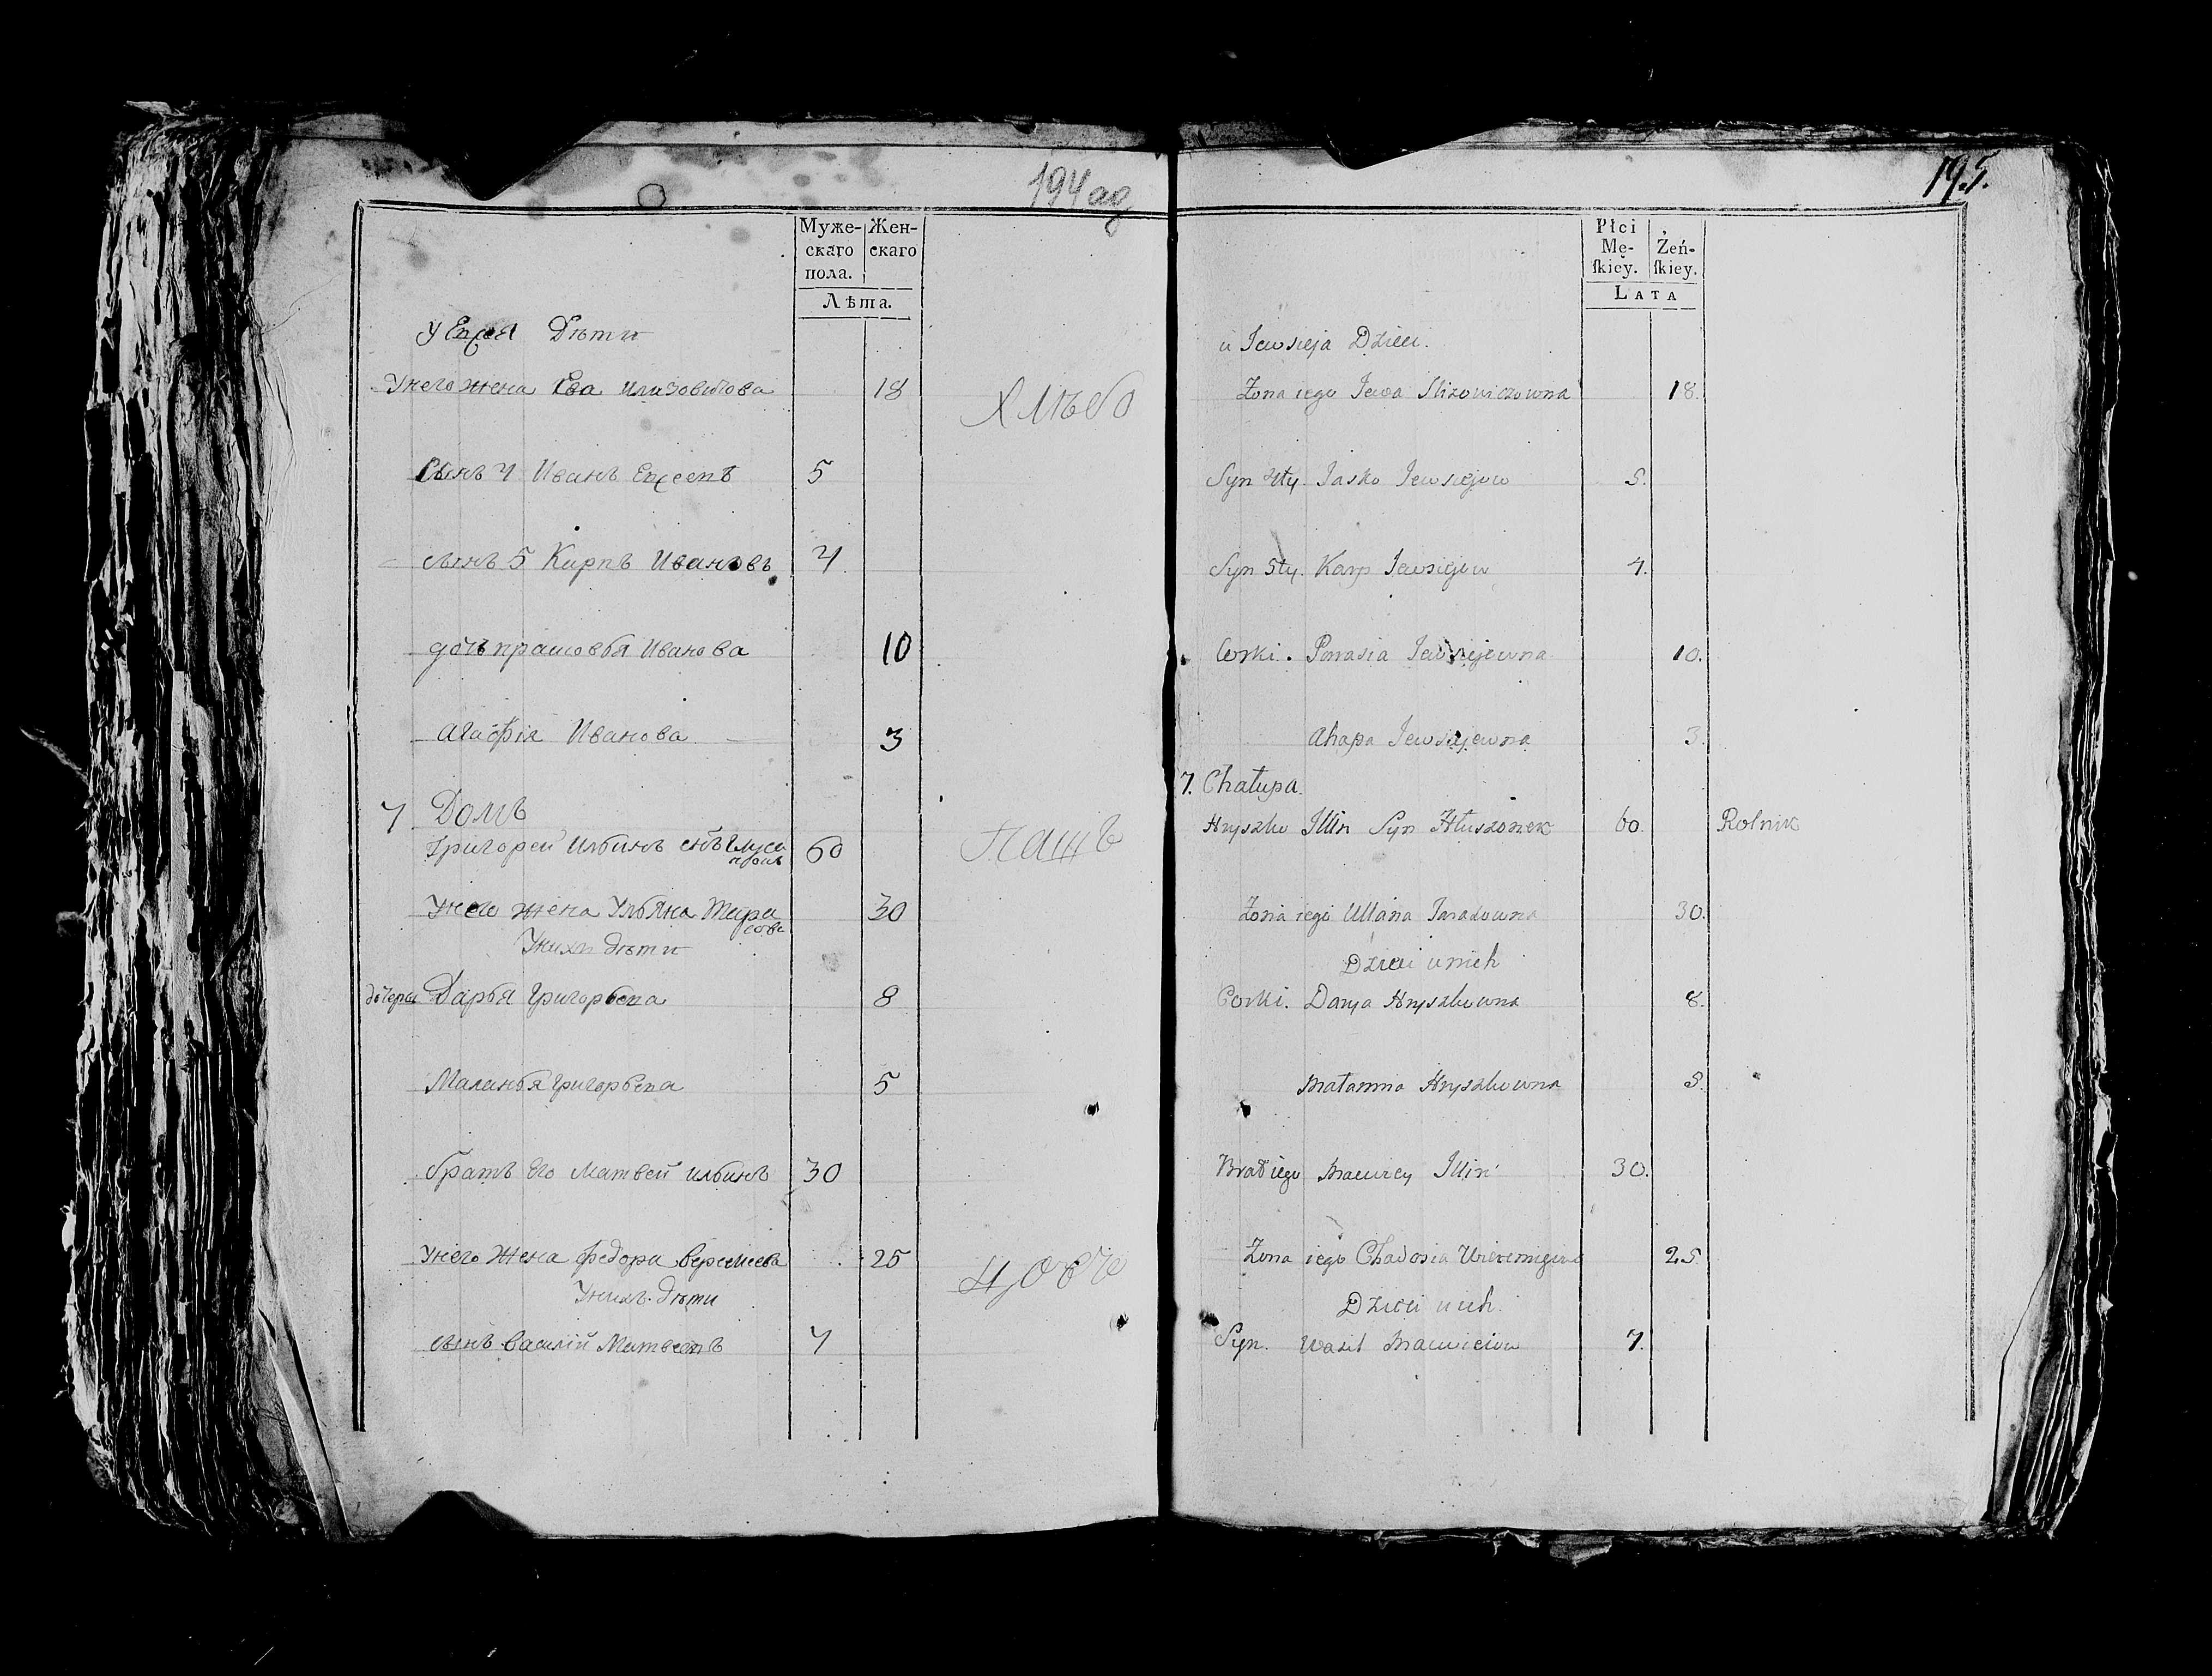 194 ад
Муже- Жен-
скаго скаго
пола.
Лѣта.
У Евсея Дѣти
Унего жена Ева Илизовитова 18
Хлѣбо
Сынъ 4 Иванъ Евсеевъ 5
сынъ 5 Карпъ Ивановъ 4
дочь прасковья Иванова 10
Агафія Иванова 3
7 Домъ
Григорей Ильинъ снъ 60
Пашъ
Унего жена Ульяна Тара
сова 30
Унихъ дѣти
дочери Дарья Григорьева 8
Маланья Григорьева 5
братъ Его Матвей Ильинъ 30
Унего Жена Федора Веремеева 25
Унихъ дѣти
сынъ Василій Матвеевъ 7
195.
Płci
Mę- Żeń-
ſkiey. ſkiey.
LATA
u Jewsieja Dzieci.
Żona iego Jewa Ilizowiczowna 18.
Syn 4ty. Jasko Jewsiejow 5.
Syn 5ty. Karp Jewsiejow 4.
Corki. Parasia Jewsiejewna 10.
Ahapa Jewsiejewna 3.
7. Chałupa.
Hryszko Illin Syn Hłuszonek 60. Rolnik
Żona iego Ullana Tarasowna 30.
Dzieci u nich
Corki. Darya Hryszkowna 8.
Małannia Hryszkowna 5.
Brat iego Maciwiey Illin 30.
Żona iego Chadosia 25.
Dzieci u ich.
Syn. Wasil Maciwieiow 7.